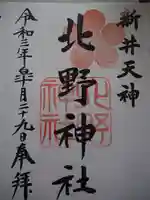 新井天神
北野神社
令和三年皐月二十九日奉拝
北野
神社